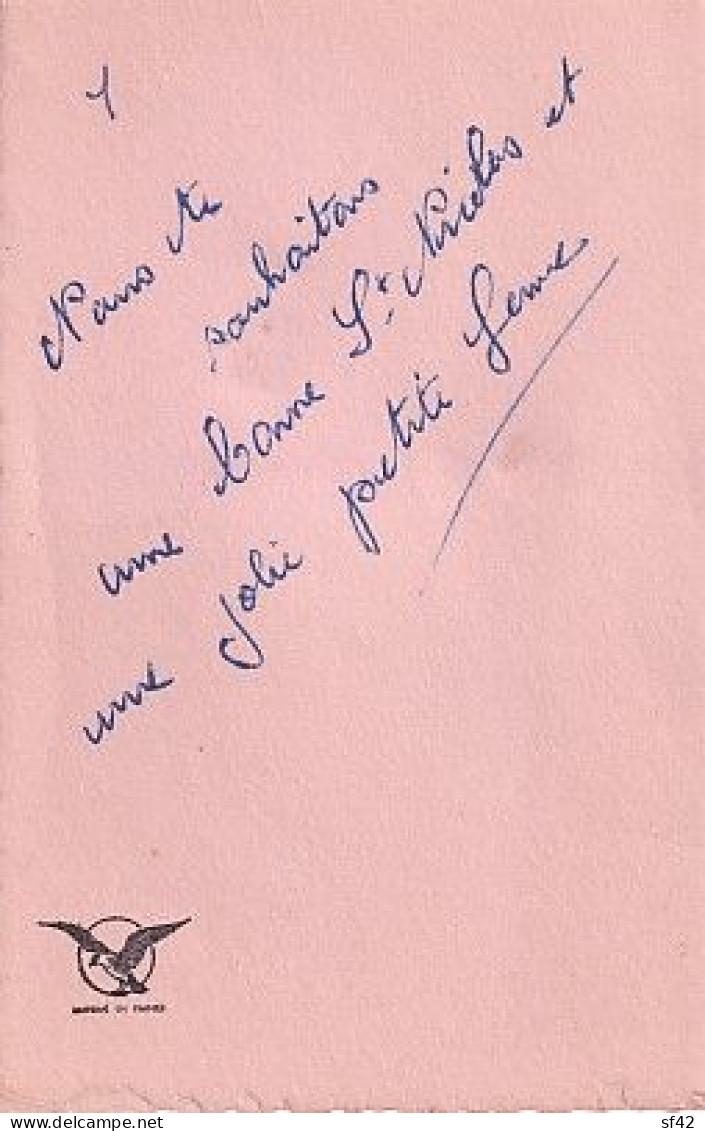 Nous te
souhaitons
une bonne St. Nicolas et
une jolie petite
IMPRIMÉ EN FRANCE
delcampe.net
sf42